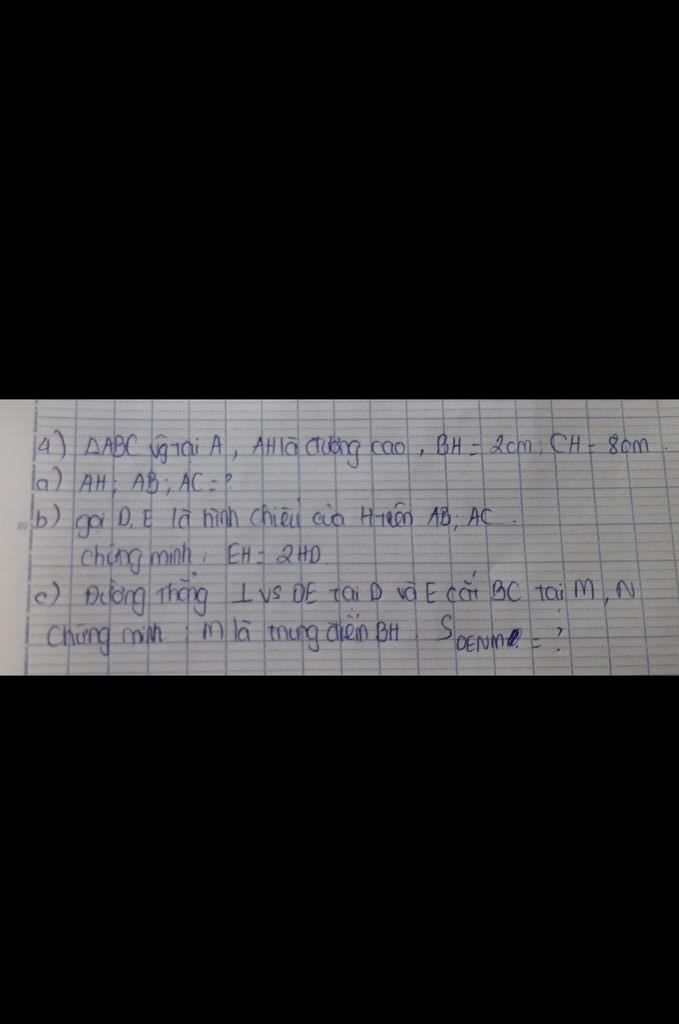 4) ΔABC vg tại A, AH là đường cao, BH = 2cm; CH = 8cm.
a) AH; AB; AC = ?
b) gọi D, E là hình chiếu của H trên AB; AC.
chứng minh: EH = 2HD
c) Đường thẳng ⊥ vs DE tại D và E cắt BC tại M, N
Chứng minh: M là trung điểm BH. S DENM = ?